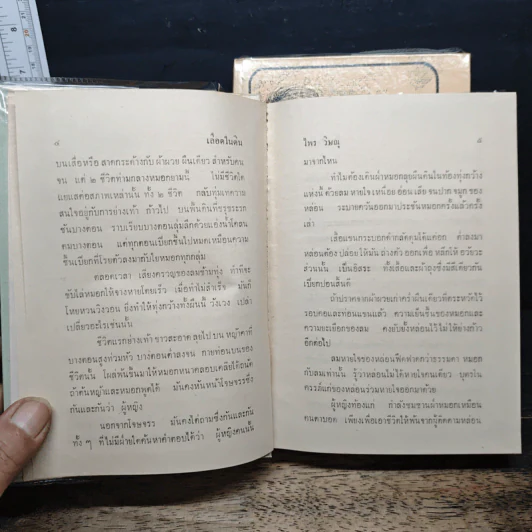 ๘ เลือดในดิน
บนเสื่อหรือ สาดกระด้างกับ ผ้าผวย ผืนเดียว สำหรับคน
จน แต่ ๒ ชีวิตท่ามกลางหมอกยามนี้ ไม่มีชีวิตใด
แยแสต่อสภาพเหล่านั้น ทั้ง ๒ ชีวิต กลับทุ่มเทความ
สนใจอยู่กับการย่างเท้า ก้าวไป บนพื้นดินที่ขรุขระรก
ชันบางตอน ราบเรียบบางตอนลุ่มลึกด้วยแอ่งน้ำโคลน
ตมบางตอน แต่ทุกตอนเปียกชื้นไปหมดเหมือนความ
ชื้นเปียกที่โรยตัวลงมากับใบหมอกทุกกลุ่ม
ตลอดเวลา เสียงคราญของลมข้ามทุ่ง ทำที่จะ
ขับไล่หมอกให้จางหายโดยเร็ว เมื่อทำไม่สำเร็จ มันก็
โหยหวนวังเวง ยิ่งทำให้ทุ่งกว้างทั้งผืนนี้ วังเวง เปล่า
เปลี่ยวอะไรเช่นนั้น
ชีวิตแรกย่างเท้า ยาวสะอาด ลุยไป บน หญ้าคาที่
บางตอนสูงท่วมหัว บางตอนต่ำลงจน กายท่อนบนของ
ชีวิตนั้น โผล่พ้นขึ้นมาให้หมอกหนาคลอบเคลียได้ถนัด
ถ้าต้นหญ้าและหมอกพูดได้ มันคงหันหน้าไปเจรจาซึ่ง
กันและกันว่า ผู้หญิง
นอกจากเจรจา มันคงใคร่ถามซึ่งกันและกัน
ทั้ง ๆ ที่ไม่มีฝ่ายใดค้นหาคำตอบได้ว่า ผู้หญิงคนนั้น
ไพร วิษณุ ๙
มาจากไหน
ทำไมต้องเดินฝ่าหมอกลุยผืนดินในท้องทุ่งกว้าง
แห่งนี้ ด้วยลม หายใจ เหนื่อย อ่อน เสีย จนปาก จมูก ของ
หล่อน ระบายควันออกมาประชันหมอกครั้งแล้วครั้ง
เล่า
เสื้อแขนกระบอกดำกลัดดุมใต้แค่อก ต่ำลงมา
หล่อนต้อง ปล่อยให้มัน ถ่างตัว ออกเพื่อ หลีกให้ อวัยวะ
ส่วนนั้น เป็นอิสระ ทั้งเสื้อและผ้าถุงซึ่งมีสีเดียวกัน
เปียกปอนสิ้นดี
ถ้าปราศจากผ้าผวยเก่าคร่ำ ผืนเดียวที่ตระหวัดไว้
รอบคอและท่อนแขนแล้ว ความเย็นชื้นของหมอกและ
ความยะเยือกของลม คงยับยั้งหล่อนไว้ไม่ให้ย่างก้าว
อีกต่อไป
ลมหายใจของหล่อนฟืดฟาดกว่าธรรมดา หมอก
กับลมเท่านั้น รู้ว่าหล่อนไม่ได้หายใจคนเดียว บุตรใน
ครรภ์แก่ของหล่อนร่วมหายใจออกมาด้วย
ผู้หญิงท้องแก่ กำลังซมซานฝ่าหมอกเหมือน
คนตาบอด เพียงเพื่อเอาชีวิตให้พ้นจากผู้ติดตามหล่อน